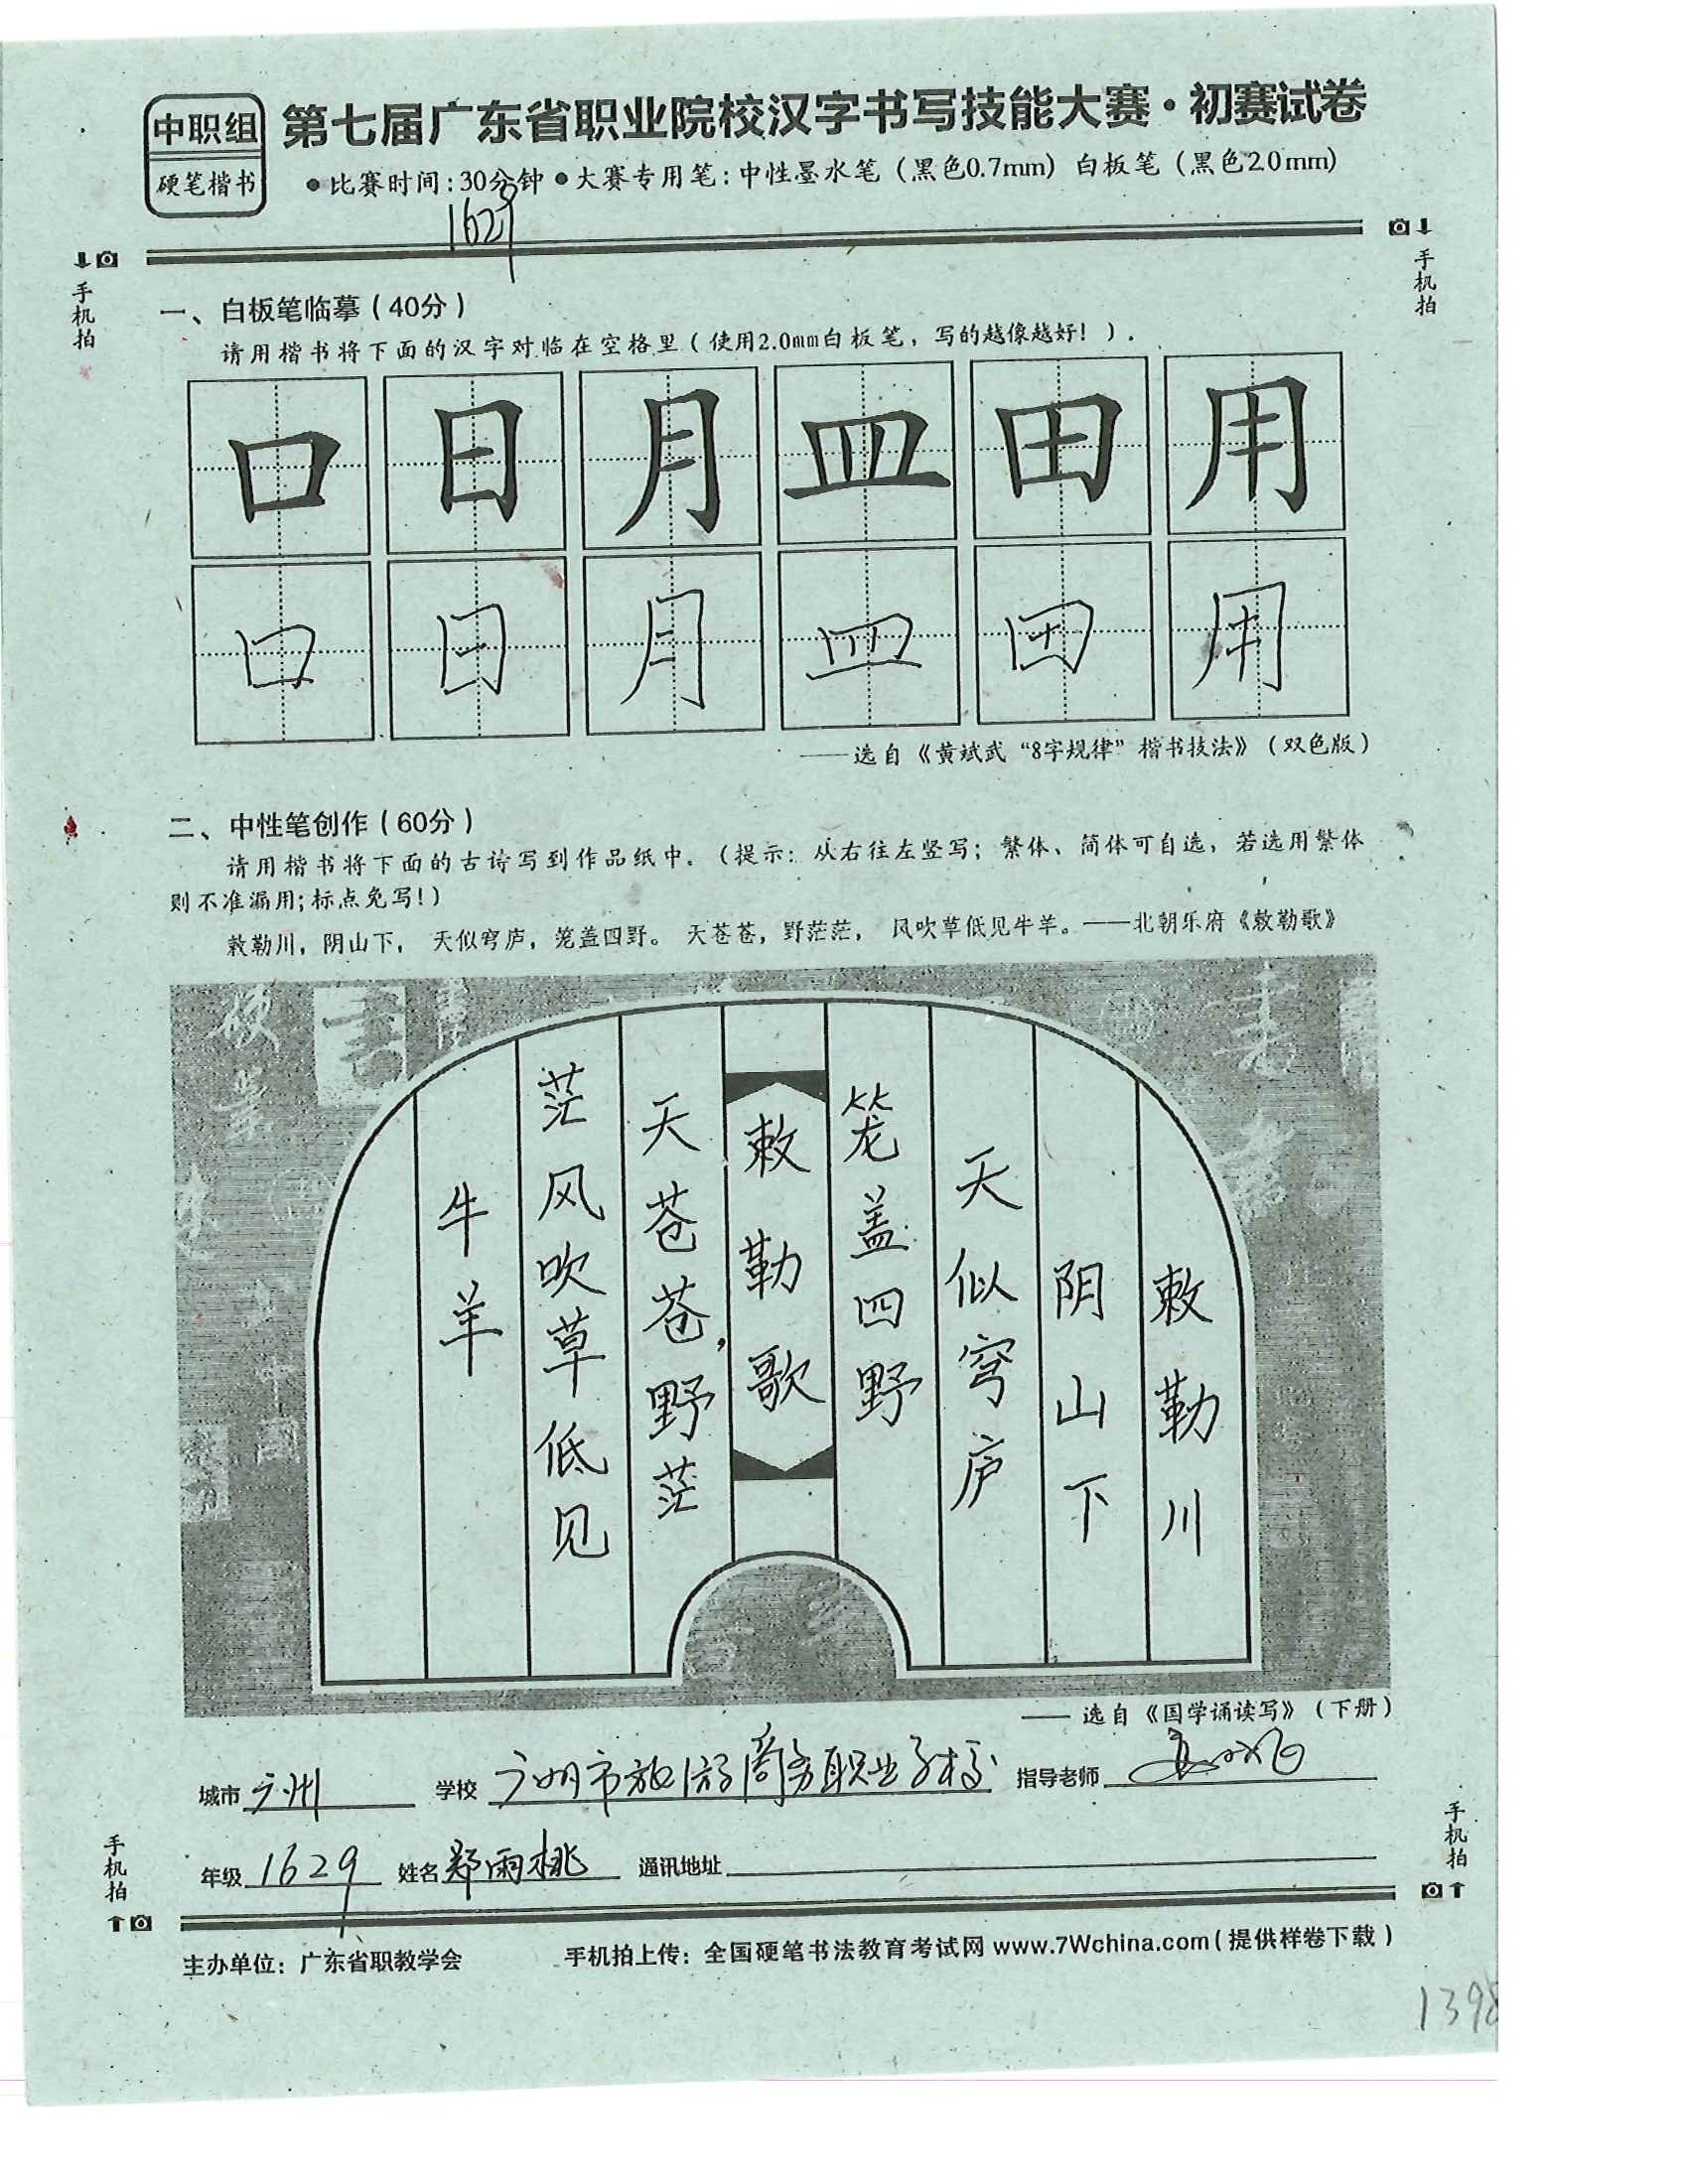 中职组
硬笔楷书
第七届广东省职业院校汉字书写技能大赛·初赛试卷
●比赛时间:30分钟 ●大赛专用笔:中性墨水笔(黑色0.7mm) 白板笔(黑色2.0mm)
1629
手机拍
手机拍
一、白板笔临摹(40分)
请用楷书将下面的汉字对临在空格里(使用2.0mm白板笔,写的越像越好!).
口 日 月 皿 田 用
口 日 月 皿 田 用
——选自《黄斌武“8字规律”楷书技法》(双色版)
二、中性笔创作(60分)
请用楷书将下面的古诗写到作品纸中。(提示:从右往左竖写;繁体、简体可自选,若选用繁体
则不准漏用;标点免写!)
敕勒川,阴山下, 天似穹庐,笼盖四野。 天苍苍,野茫茫, 风吹草低见牛羊。——北朝乐府《敕勒歌》
敕勒川
阴山下
天似穹庐
笼盖四野
敕勒歌
天苍苍,野茫
茫风吹草低见
牛羊
—— 选自《国学诵读写》(下册)
城市 广州 学校 广州市旅游商务职业学校 指导老师
年级 1629 姓名 郑雨桃 通讯地址
手机拍
手机拍
主办单位:广东省职教学会 手机拍上传:全国硬笔书法教育考试网 www.7Wchina.com(提供样卷下载)
1398